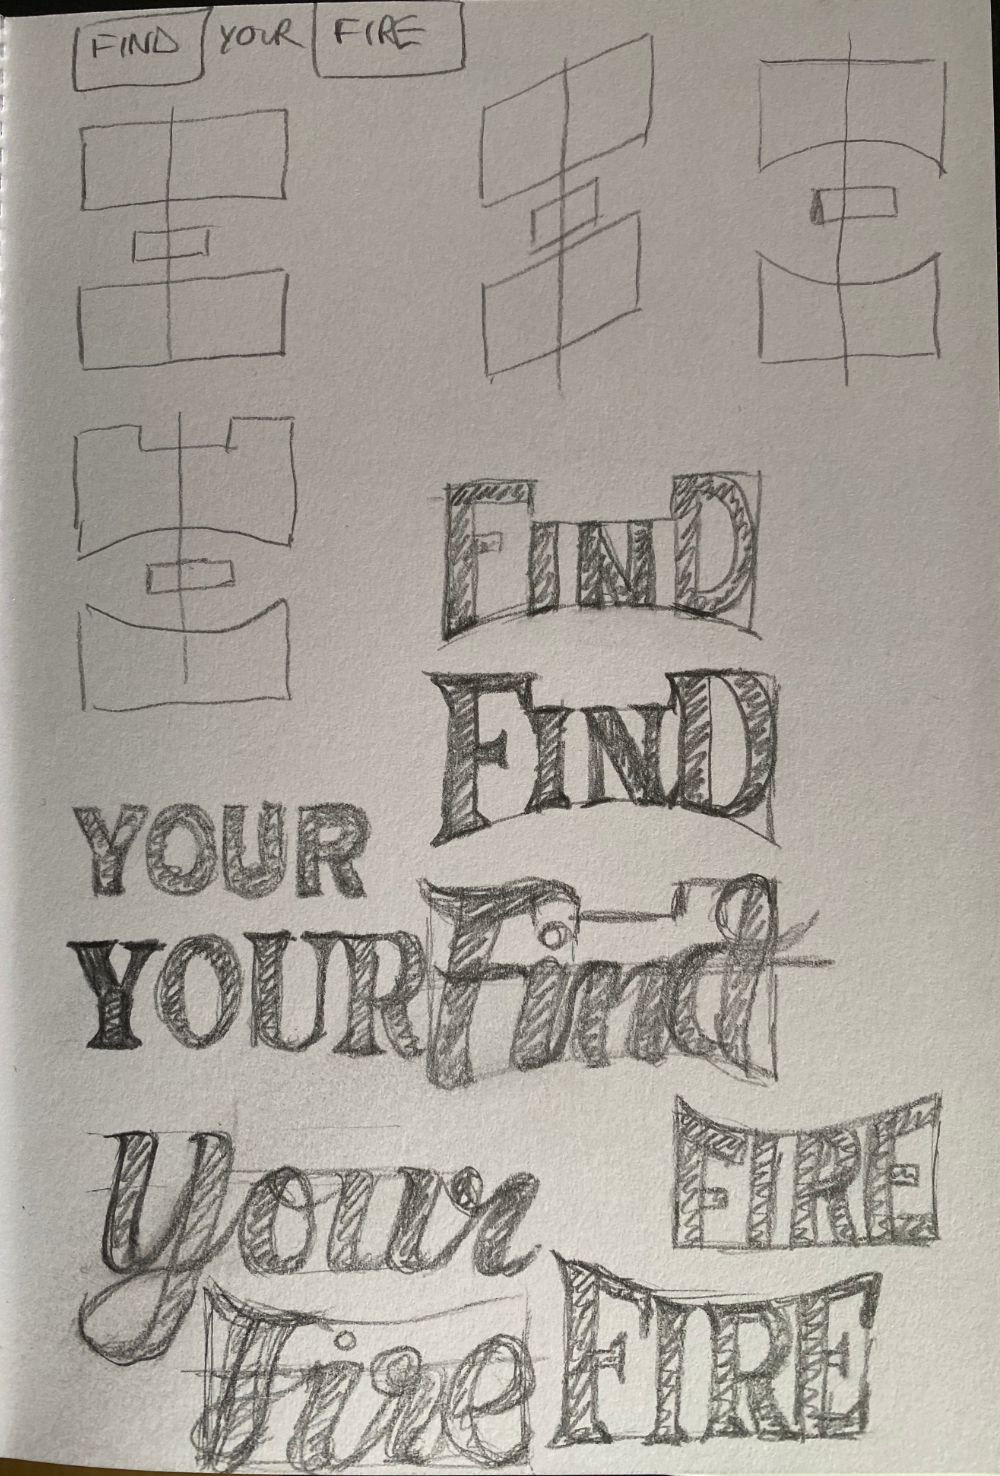 FIND YOUR FIRE
FIND
FIND
YOUR
Find
YOUR
Your
FIRE
Fire
FIRE